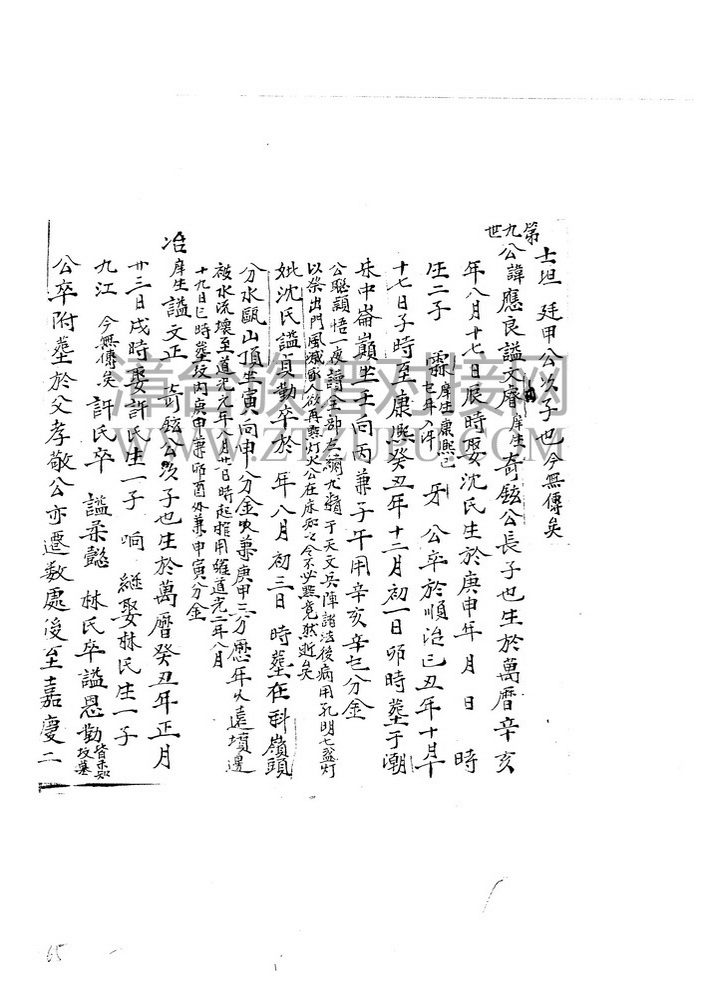 士坦 廷甲公次子也今無傳矣
第九世
公諱應良謚文睿庠生奇鉉公長子也生於萬曆辛亥
年八月十七日辰時娶沈氏生於庚申年 月 日 時
庄二子 霖庠生康熙己巳年入泮 牙 公卒於順治己丑年十月十
十七日子時至康熙癸丑年十二月初一日卯時葬于潮
中崙巔坐壬向丙兼子午用辛亥辛巳分金
公聰穎悟一夜讀全部左繡九精于天文兵陣諸法後病用孔明七盞灯
以柴出門風滅家人欲再燃灯火公在床知之令不必燃竟然逝矣
妣沈氏謚貞勤卒於 年八月初三日 時葬在科嶺頭
分水甌山頂坐寅向申分金以兼庚甲三分歷年久遠墳邊
被水流壞至道光元年八月廿一日時起 用 道光二年八月
十九日巳時葬坟丙庚申兼卯酉外兼申寅分金
冶庠生謚文正 奇鉉公次子也生於萬曆癸丑年正月
廿三日戌時娶許氏生一子 响 継娶林氏生一子
九江 今無傳矣 許氏卒 謚柔懿 林氏卒謚恩勤皆未知坟墓
公卒附葬於父孝敬公亦遷数處後至嘉慶二
漳台族谱对接网
WWW.ZTZUPU.COM
65